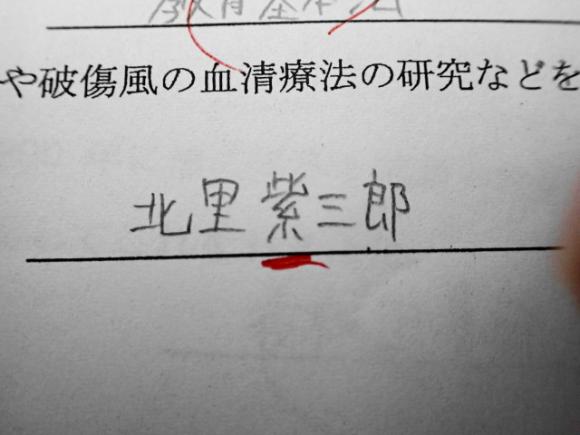 教育基本法
や破傷風の血清療法の研究などを
北里紫三郎